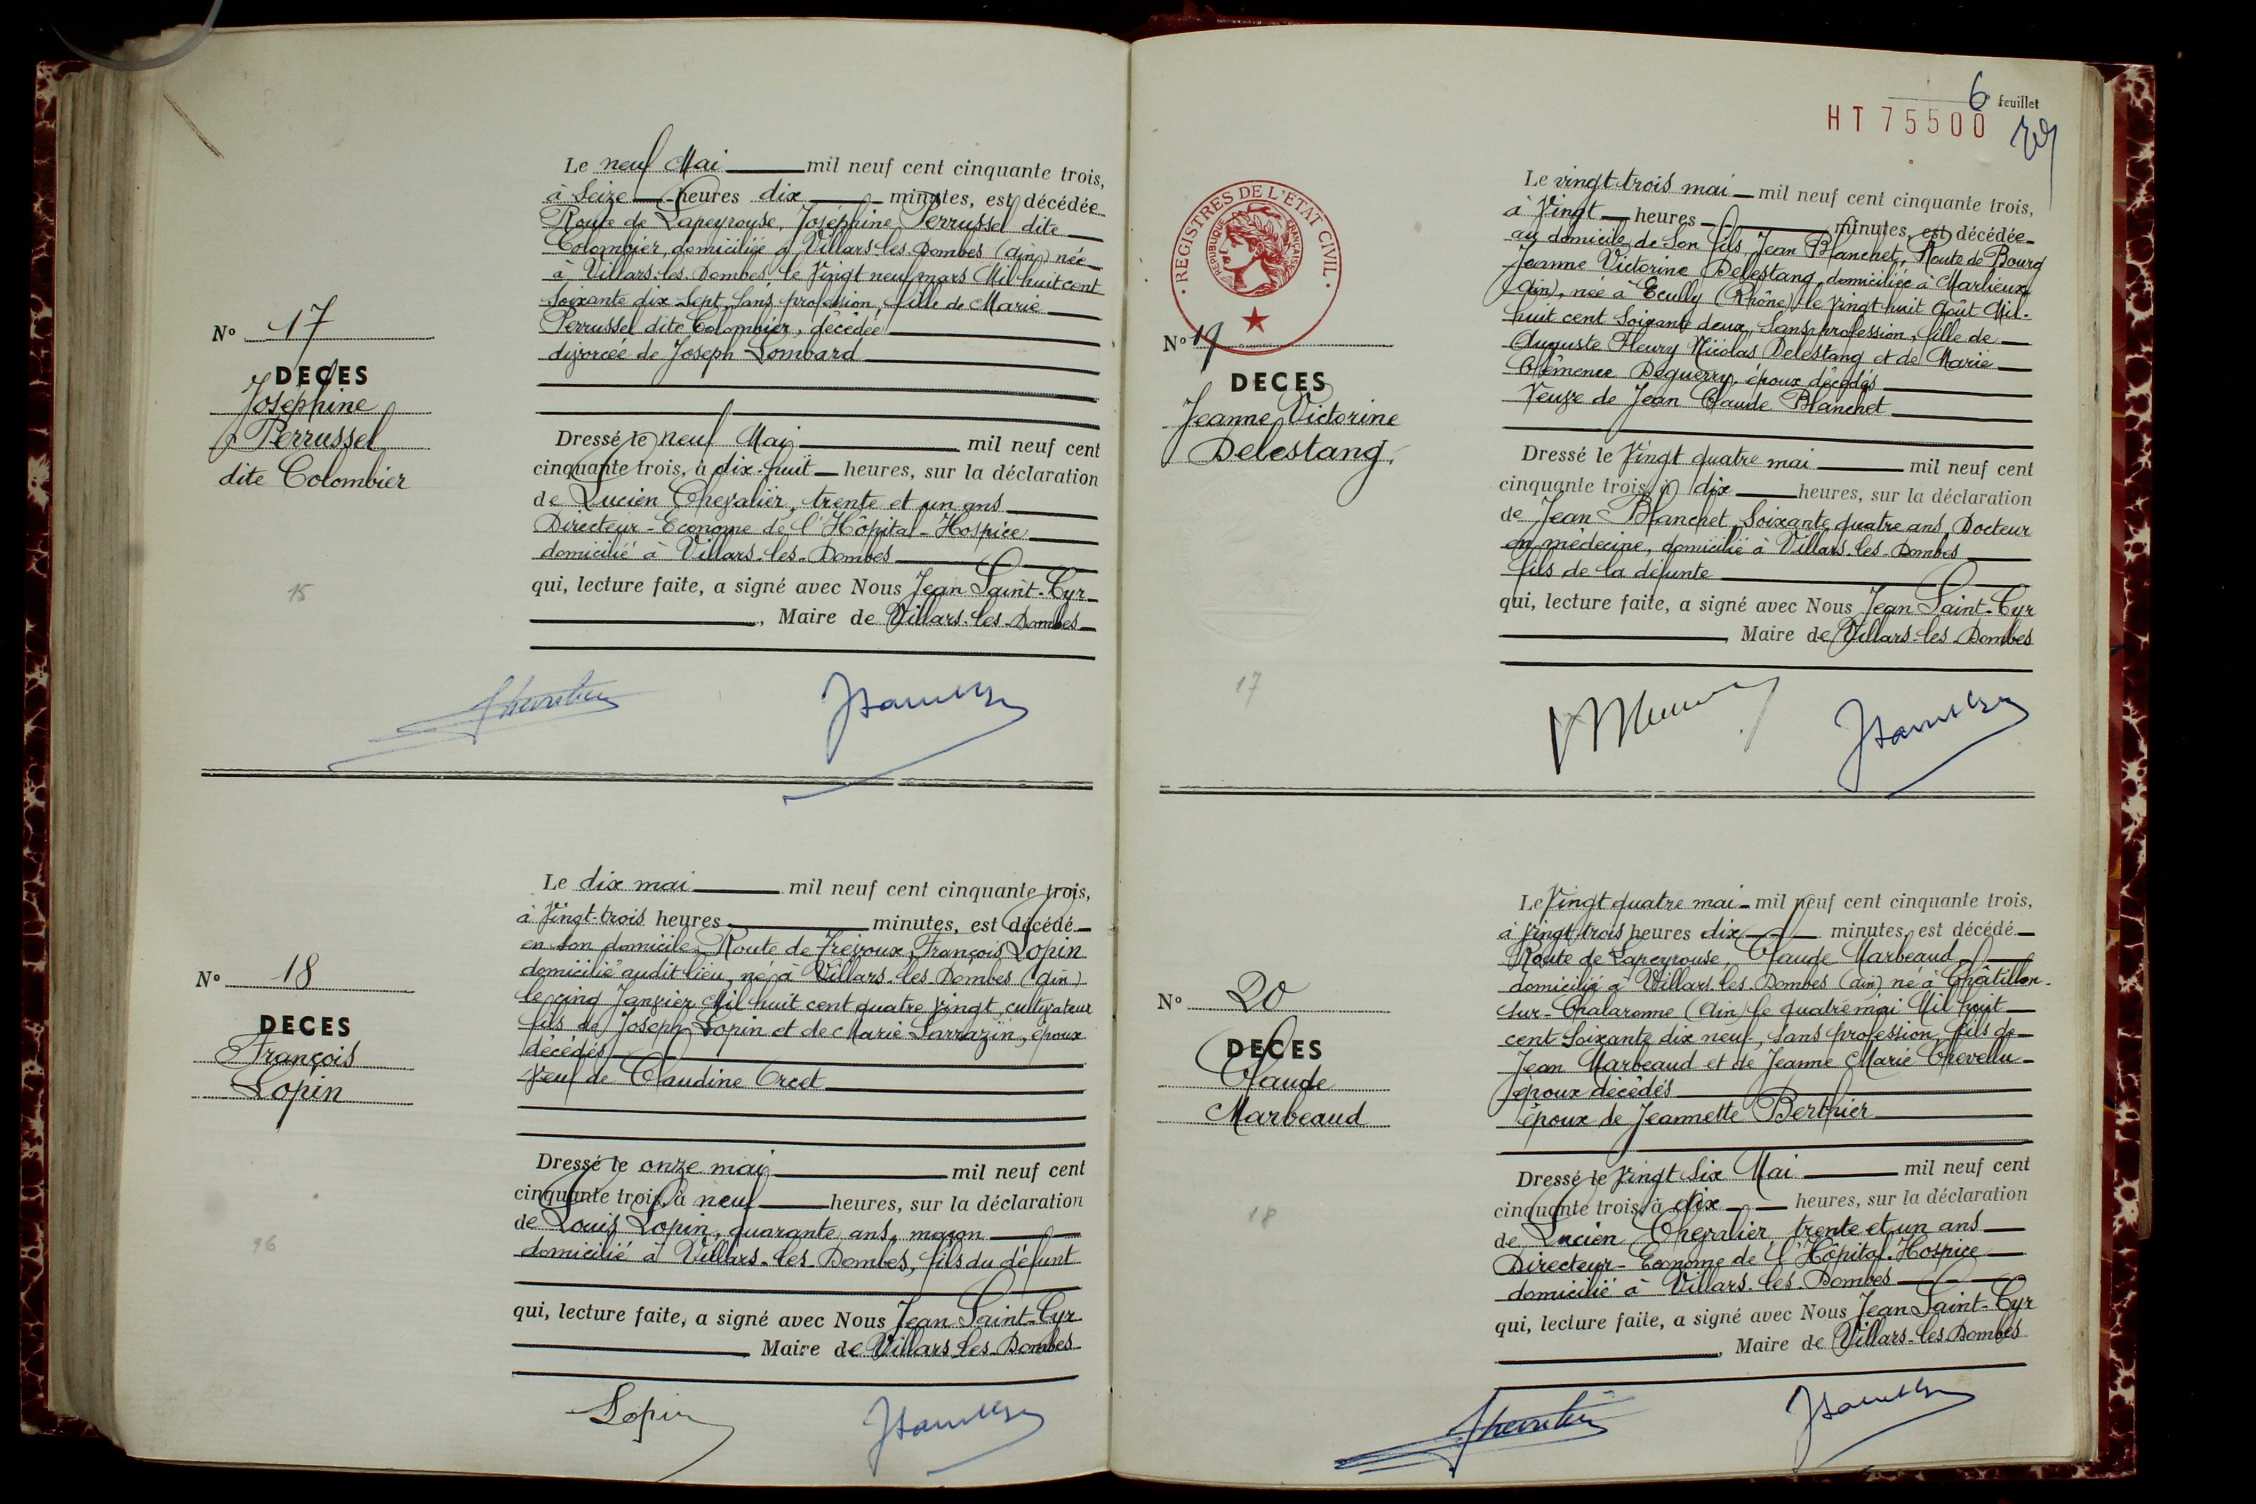 Nº 17
DECES
Joséphine
Perrussel
dite Colombier
15
Le neuf Mai mil neuf cent cinquante trois,
à Seize heures dix minutes, est décédée
Route de Lapeyrouse, Joséphine Perrussel dite
Colombier, domiciliée à Villars-les-Dombes (Ain) née
à Villars-les-Dombes le Vingt neuf mars Mil huit cent
Soixante dix-sept, Sans profession, fille de Marie
Perrussel dite Colombier, décédée
divorcée de Joseph Lombard
Dressé le neuf Mai mil neuf cent
cinquante trois, à dix-huit heures, sur la déclaration
de Lucien Chevalier, trente et un ans
Directeur-Econome de l'Hôpital-Hospice
domicilié à Villars-les-Dombes
qui, lecture faite, a signé avec Nous Jean Saint-Cyr
, Maire de Villars-les-Dombes
Nº 18
DECES
François
Lopin
16
Le dix mai mil neuf cent cinquante trois,
à Vingt-trois heures minutes, est décédé
en son domicile, Route de Trévoux, François Lopin
domicilié audit lieu, né à Villars-les-Dombes (Ain)
le cinq Janvier Mil huit cent quatre vingt, cultivateur
fils de Joseph Lopin et de Marie Sarrazin, époux
décédés
Veuf de Claudine Crost
Dressé le onze mai mil neuf cent
cinquante trois, à neuf heures, sur la déclaration
de Louis Lopin, quarante ans, maçon
domicilié à Villars-les-Dombes, fils du défunt
qui, lecture faite, a signé avec Nous Jean Saint-Cyr
Maire de Villars-les-Dombes
Lopin
6e feuillet
HT 75500
REGISTRES DE L'ETAT CIVIL
REPUBLIQUE FRANCAISE
Nº 19
DECES
Jeanne Victorine
Delestang
17
Le vingt trois mai mil neuf cent cinquante trois,
à Vingt heures minutes, est décédée
au domicile de Son fils, Jean Blanchet, Route de Bourg
Jeanne Victorine Delestang, domiciliée à Marlieux
(Ain), née à Ecully (Rhône) le Vingt huit Août Mil-
huit cent Soixante deux, Sans profession, fille de
Auguste Fleury Nicolas Delestang et de Marie
Clémence Deguerry, époux décédés
Veuve de Jean Claude Blanchet
Dressé le Vingt quatre mai mil neuf cent
cinquante trois, à dix heures, sur la déclaration
de Jean Blanchet, Soixante quatre ans, Docteur
en médecine, domicilié à Villars-les-Dombes
fils de la défunte
qui, lecture faite, a signé avec Nous Jean Saint-Cyr
, Maire de Villars-les-Dombes
Nº 20
DECES
Claude
Marbeaud
18
Le Vingt quatre mai mil neuf cent cinquante trois,
à Vingt trois heures dix minutes, est décédé
Route de Lapeyrouse, Claude Marbeaud
domicilié à Villars-les-Dombes (Ain) né à Châtillon-
sur-Chalaronne (Ain) le quatre mai Mil huit
cent Soixante dix neuf, sans profession, fils de
Jean Marbeaud et de Jeanne Marie Chevellu
époux décédés
époux de Jeannette Berthier
Dressé le Vingt Six Mai mil neuf cent
cinquante trois, à dix heures, sur la déclaration
de Lucien Chevalier, trente et un ans
Directeur-Econome de l'Hôpital-Hospice
domicilié à Villars-les-Dombes
qui, lecture faite, a signé avec Nous Jean Saint-Cyr
, Maire de Villars-les-Dombes